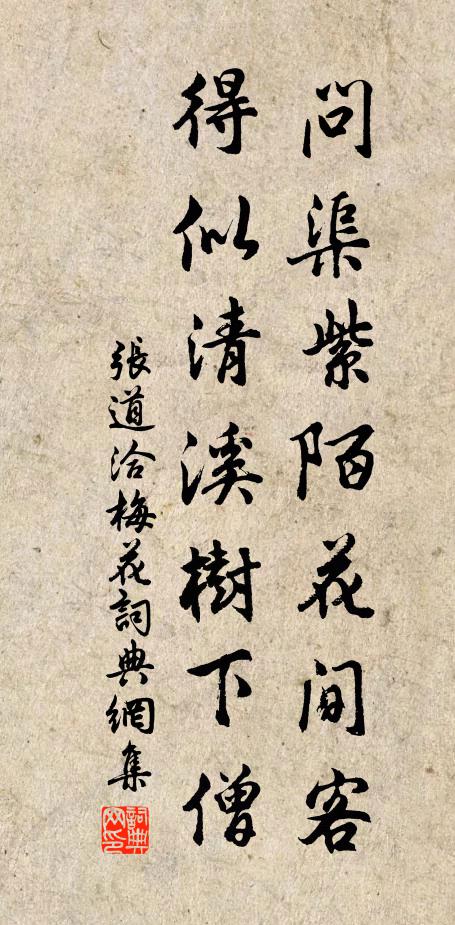 問渠紫陌花間客
得似清溪樹下僧
張道洽梅花詞典網集
詞典網印